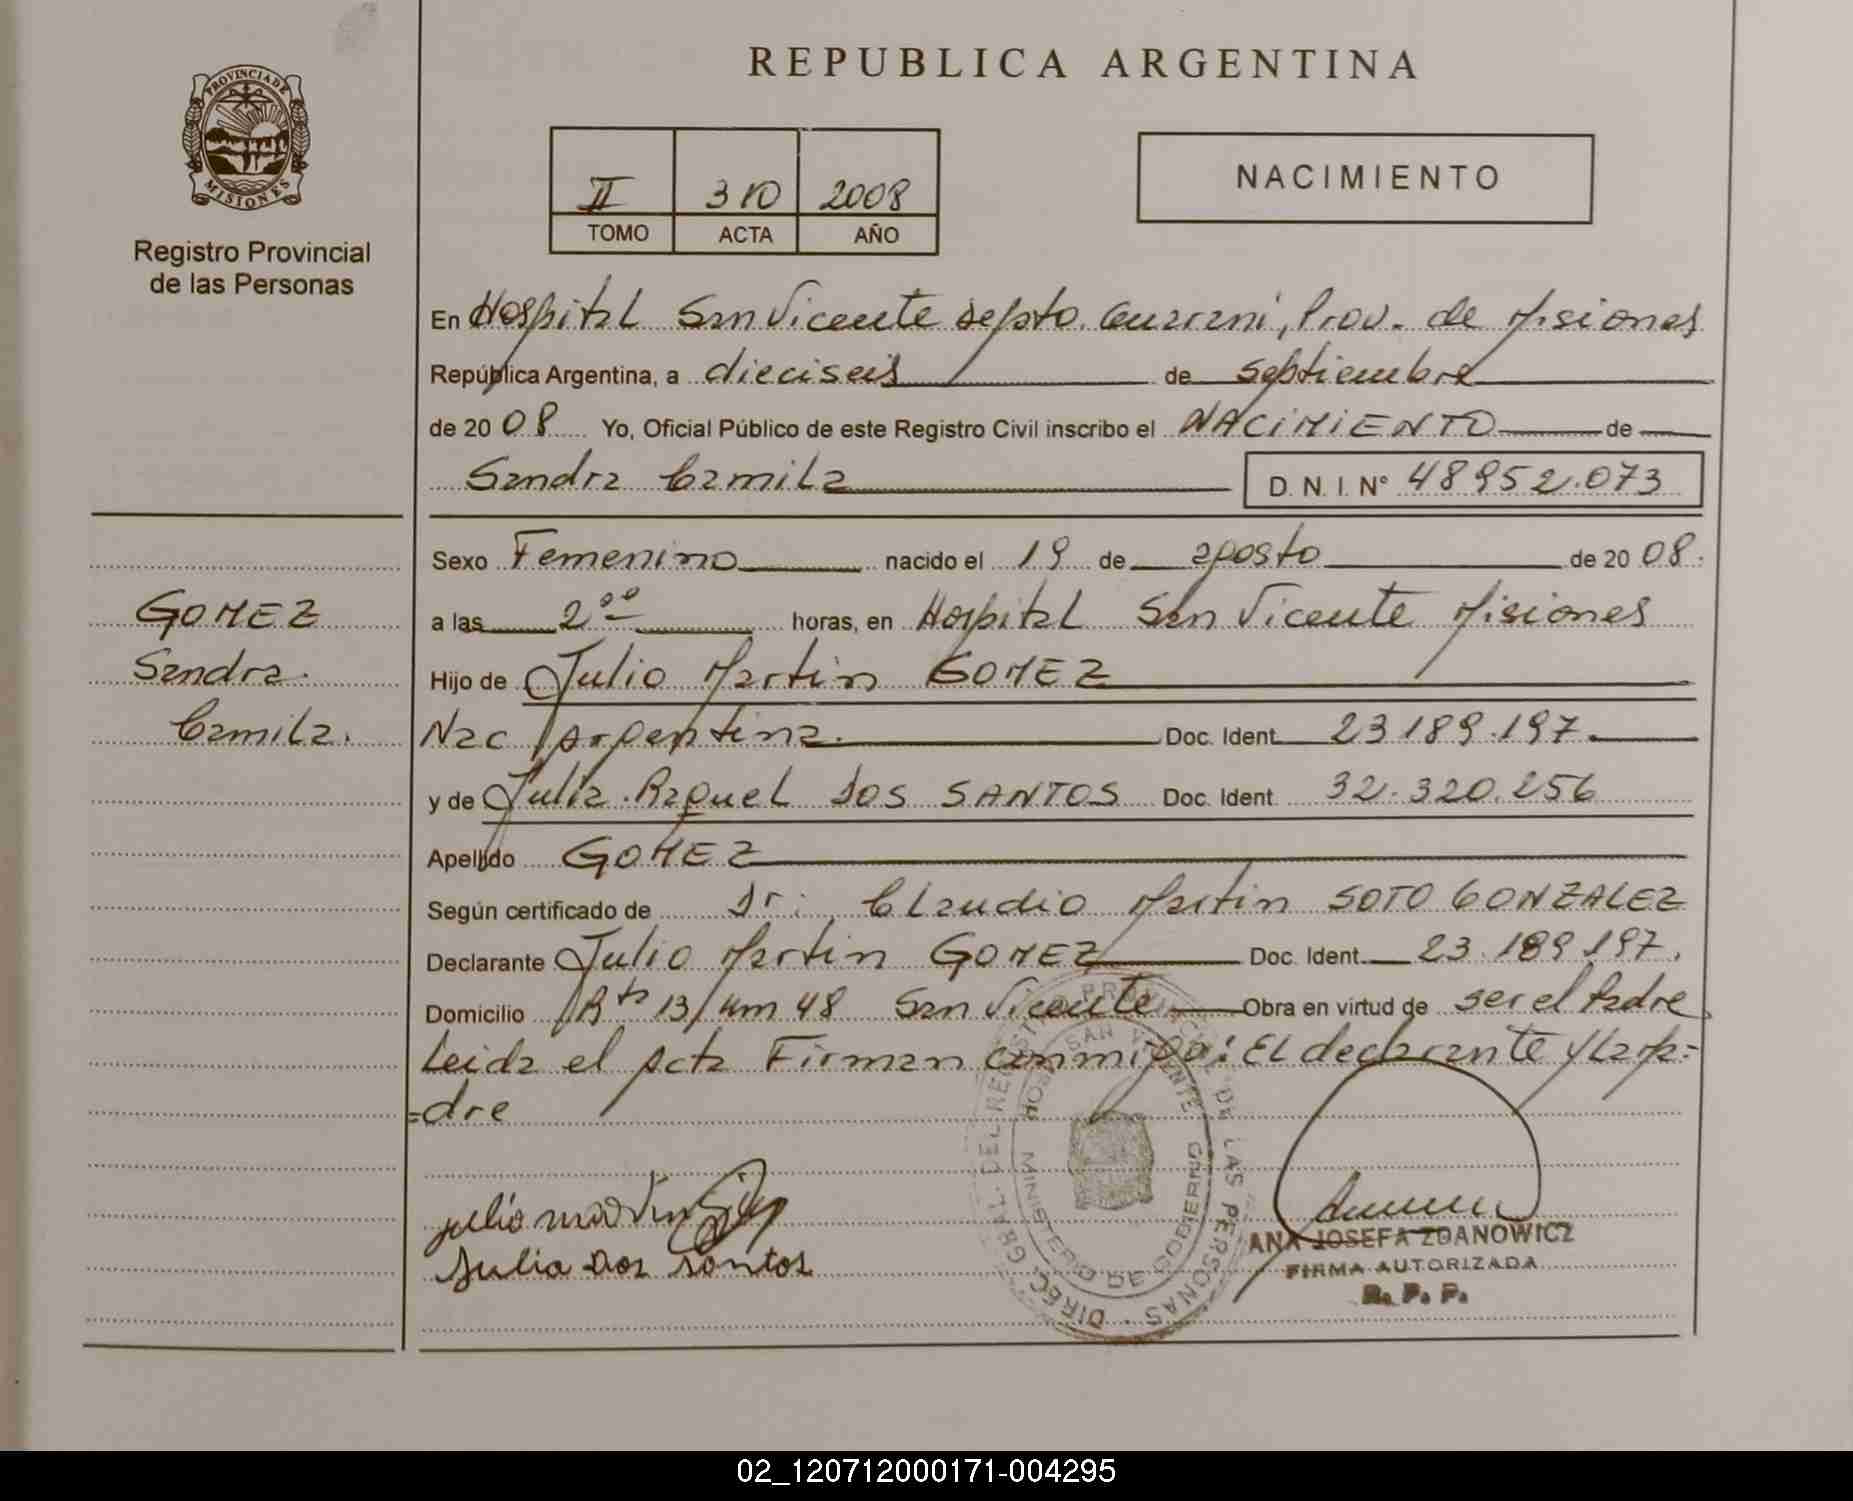 REPUBLICA ARGENTINA
PROVINCIA DE
MISIONES
Registro Provincial
de las Personas
II 310 2008
TOMO ACTA AÑO
NACIMIENTO
En Hospital San Vicente Depto. Guarani, Prov. de Misiones
República Argentina, a dieciseis de septiembre
de 2008 Yo, Oficial Público de este Registro Civil inscribo el NACIMIENTO de
Sandra Camila D. N. I. N° 48952.073
Sexo Femenino nacido el 19 de agosto de 2008.
GOMEZ
Sandra
Camila.
a las 2°° horas, en Hospital San Vicente Misiones
Hijo de Julio Martin GOMEZ
Nac Argentina. Doc. Ident. 23189.197.
y de Julia Raquel DOS SANTOS Doc. Ident 32.320.256
Apellido GOMEZ
Según certificado de Dr: Claudio Martin SOTO GONZALEZ
Declarante Julio Martin GOMEZ Doc. Ident. 23.189.197.
Domicilio Rta 13/Km 48 San Vicente Obra en virtud de ser el Padre
Leida el Acta Firman conmigo: El declarante y la Ma=
=dre
julio martin
Julia Dos Santos
DIREC. GRAL. DEL REGISTRO PROVINCIAL DE LAS PERSONAS
HOSP. SAN VICENTE
MINISTERIO DE GOBIERNO
ANA JOSEFA ZDANOWICZ
FIRMA AUTORIZADA
R. P. P.
02_120712000171-004295